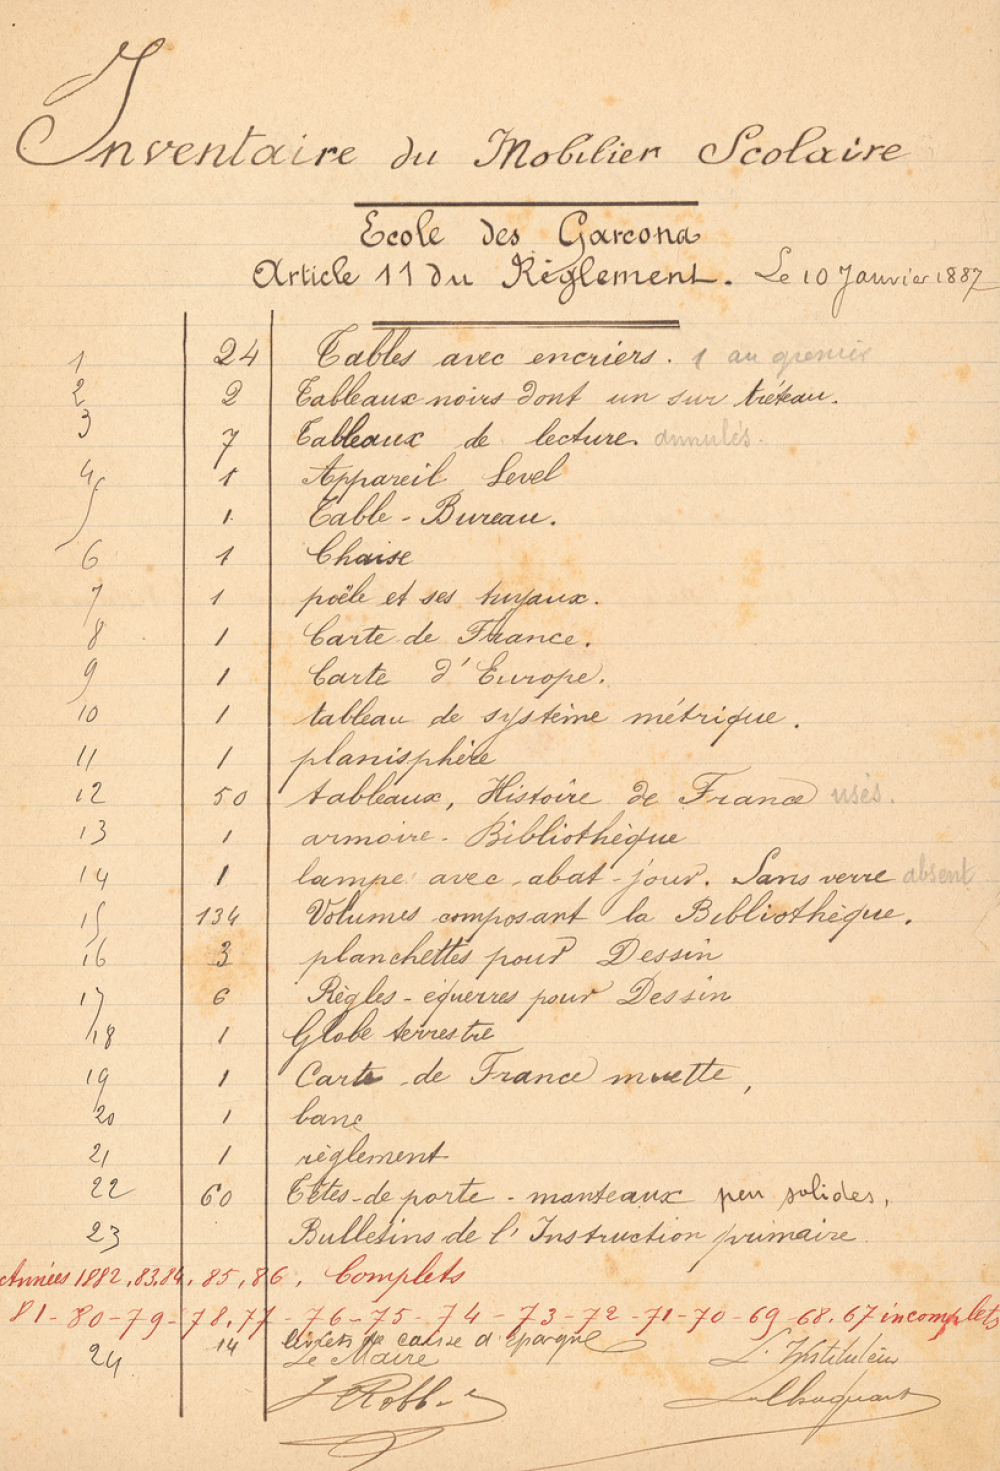 Inventaire du Mobilier Scolaire
Ecole des Garcons
Article 11 du Règlement. Le 10 Janvier 1887
1 24 Tables avec encriers. 1 au grenier
2 2 Tableaux noirs dont un sur tréteau.
3 7 Tableaux de lecture. annulés.
4 1 Appareil Level
5 1 Table-Bureau.
6 1 Chaise
7 1 poêle et ses tuyaux.
8 1 Carte de France.
9 1 Carte d'Europe.
10 1 tableau de système métrique.
11 1 planisphère
12 50 tableaux, Histoire de France usés.
13 1 armoire-Bibliothèque
14 1 lampe avec abat-jour. Sans verre absent
15 134 Volumes composant la Bibliothèque.
16 3 planchettes pour Dessin
17 6 Règles-équerres pour Dessin
18 1 Globe terrestre
19 1 Carte de France muette,
20 1 banc
21 1 règlement
22 60 Têtes-de porte-manteaux peu solides,
23 Bulletins de l'Instruction primaire.
Années 1882, 83, 84, 85, 86, Complets
81-80-79-78, 77-76-75-74-73-72-71-70-69-68, 67 incomplets
24 14 livrets de caisse d'épargne
Le Maire L'Instituteur